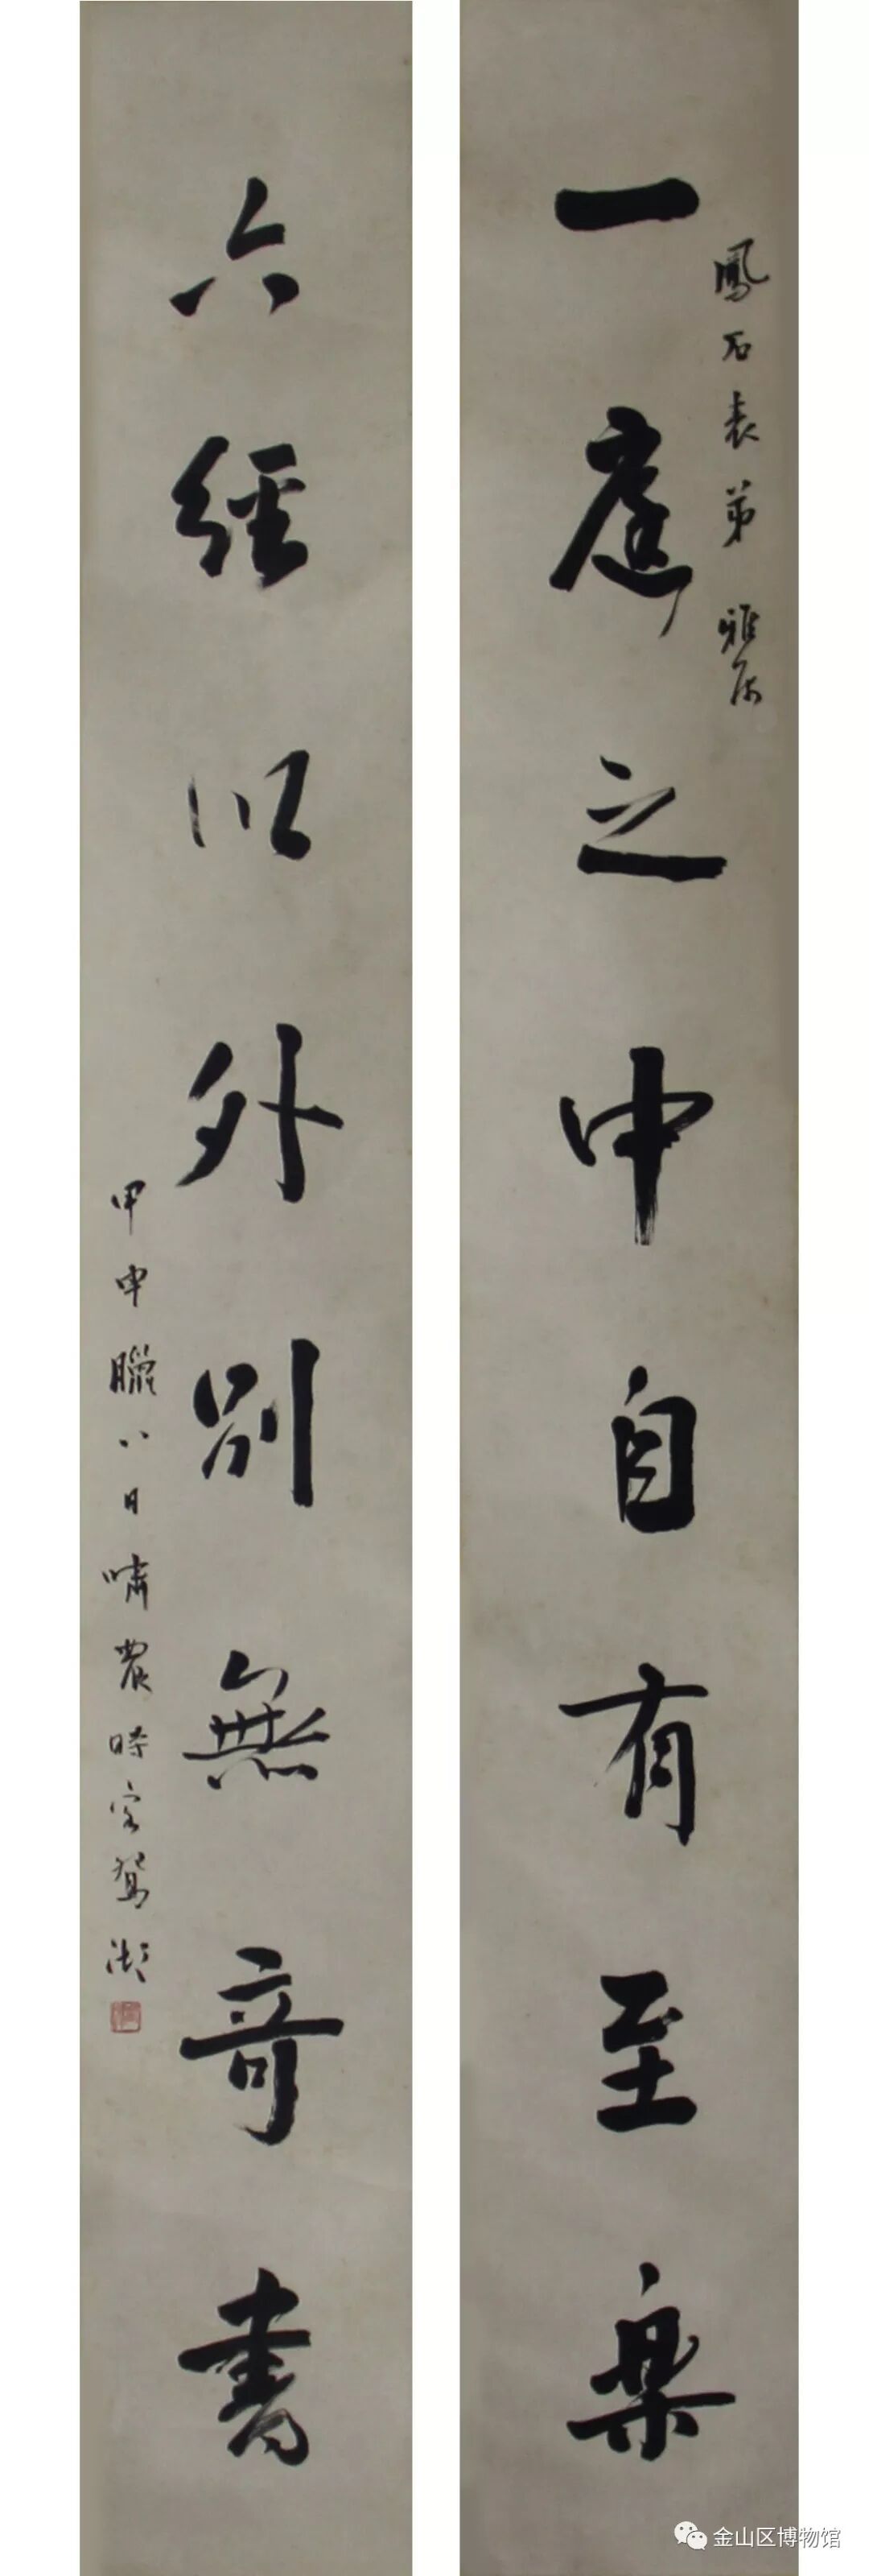 鳳石表弟雅屬
一庭之中自有至樂
六經以外別無奇書
甲申臘八日嘯農時客鴛湖
金山区博物馆